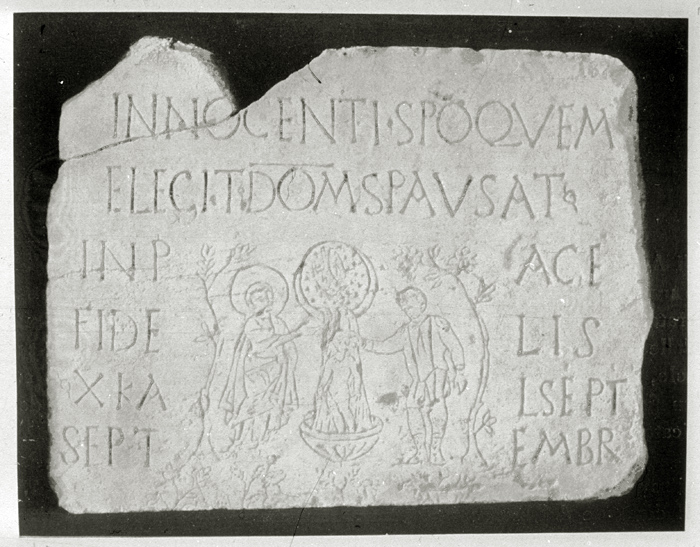 INNOCENTI·SPŌQVEM
ELEGIT·DOMSPAVSAT
INP ACE
FIDE L·I·S
X·KA LSEPT
SEPT EMBR